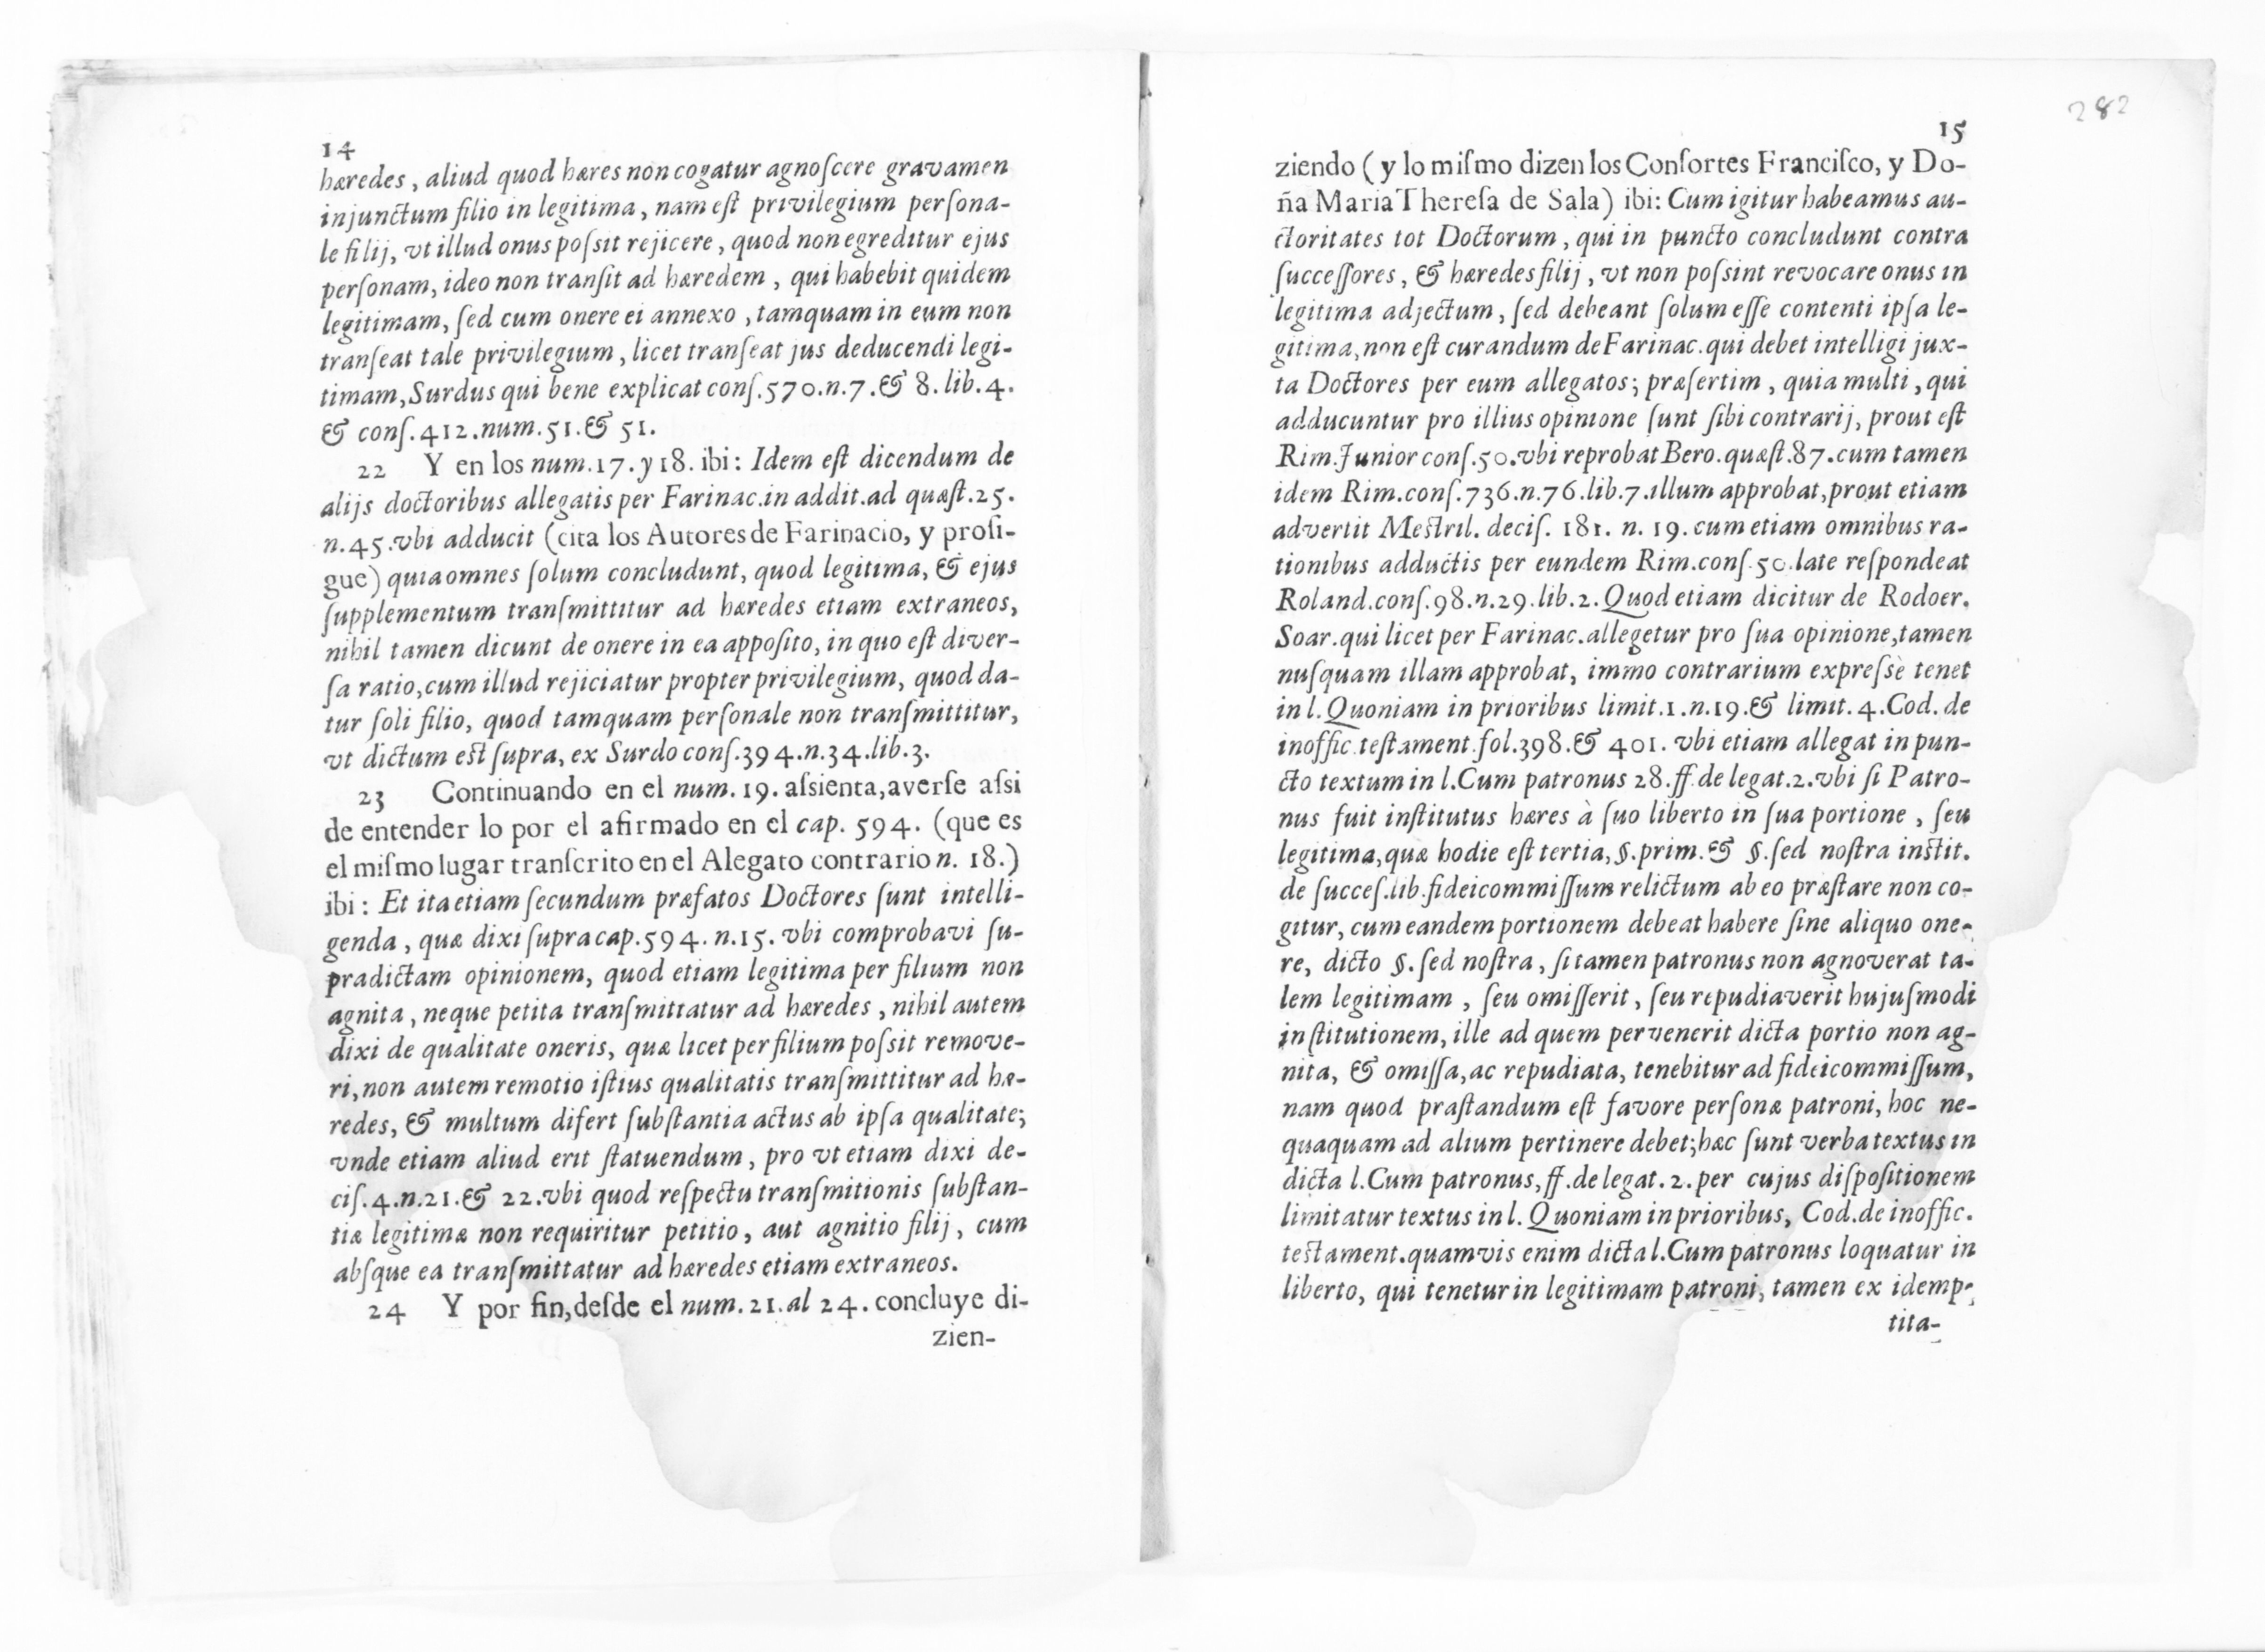 14
hæredes, aliud quod hæres non cogatur agnoſcere gravamen
injunctum filio in legitima, nam eſt privilegium perſona-
le filij, vt illud onus poſsit rejicere, quod non egreditur ejus
perſonam, ideo non tranſit ad hæredem, qui habebit quidem
legitimam, ſed cum onere ei annexo, tamquam in eum non
tranſeat tale privilegium, licet tranſeat jus deducendi legi-
timam, Surdus qui bene explicat conſ.570.n.7.& 8.lib.4.
& conſ.412.num.51.& 51.
22 Y en los num.17.y 18. ibi: Idem eſt dicendum de
alijs doctoribus allegatis per Farinac.in addit.ad quæſt.25.
n.45.vbi adducit (cita los Autores de Farinacio, y proſi-
gue) quia omnes ſolum concludunt, quod legitima, & ejus
ſupplementum tranſmittitur ad hæredes etiam extraneos,
nihil tamen dicunt de onere in ea appoſito, in quo eſt diver-
ſa ratio, cum illud rejiciatur propter privilegium, quod da-
tur ſoli filio, quod tamquam perſonale non tranſmittitur,
vt dictum eſt ſupra, ex Surdo conſ.394.n.34.lib.3.
23 Continuando en el num. 19. aſsienta, averſe aſsi
de entender lo por el afirmado en el cap. 594. (que es
el miſmo lugar tranſcrito en el Alegato contrario n. 18.)
ibi: Et ita etiam ſecundum præfatos Doctores ſunt intelli-
genda, quæ dixi ſupra cap.594. n.15. vbi comprobavi ſu-
pradictam opinionem, quod etiam legitima per filium non
agnita, neque petita tranſmittatur ad hæredes, nihil autem
dixi de qualitate oneris, quæ licet per filium poſsit remove-
ri, non autem remotio iſtius qualitatis tranſmittitur ad hæ-
redes, & multum difert ſubſtantia actus ab ipſa qualitate;
vnde etiam aliud erit ſtatuendum, pro vt etiam dixi de-
ciſ.4.n.21.& 22.vbi quod reſpectu tranſmitionis ſubſtan-
tiæ legitimæ non requiritur petitio, aut agnitio filij, cum
abſque ea tranſmittatur ad hæredes etiam extraneos.
24 Y por fin, deſde el num.21.al 24. concluye di-
zien-
282
15
ziendo (y lo miſmo dizen los Conſortes Franciſco, y Do-
ña Maria Thereſa de Sala) ibi: Cum igitur habeamus au-
ctoritates tot Doctorum, qui in puncto concludunt contra
ſucceſſores, & hæredes filij, vt non poſsint revocare onus in
legitima adjectum, ſed debeant ſolum eſſe contenti ipſa le-
gitima, non eſt curandum de Farinac.qui debet intelligi jux-
ta Doctores per eum allegatos; præſertim, quia multi, qui
adducuntur pro illius opinione ſunt ſibi contrarij, prout eſt
Rim.Junior conſ.50.vbi reprobat Bero.quæſt.87.cum tamen
idem Rim.conſ.736.n.76.lib.7.illum approbat, prout etiam
advertit Meſtril. deciſ. 181. n. 19. cum etiam omnibus ra-
tionibus adductis per eundem Rim.conſ.50.late reſpondeat
Roland.conſ.98.n.29.lib.2.Quod etiam dicitur de Rodoer.
Soar.qui licet per Farinac.allegetur pro ſua opinione, tamen
nuſquam illam approbat, immo contrarium expreſsè tenet
in l.Quoniam in prioribus limit.1.n.19.& limit. 4.Cod. de
inoffic.teſtament.fol.398.& 401. vbi etiam allegat in pun-
cto textum in l.Cum patronus 28.ff.de legat.2.vbi ſi Patro-
nus fuit inſtitutus hæres à ſuo liberto in ſua portione, ſeu
legitima, quæ hodie eſt tertia, §.prim.& §.ſed noſtra inſtit.
de ſucceſ.lib.fideicommiſſum relictum ab eo præſtare non co-
gitur, cum eandem portionem debeat habere ſine aliquo one-
re, dicto §.ſed noſtra, ſi tamen patronus non agnoverat ta-
lem legitimam, ſeu omiſſerit, ſeu repudiaverit hujuſmodi
inſtitutionem, ille ad quem pervenerit dicta portio non ag-
nita, & omiſſa, ac repudiata, tenebitur ad fideicommiſſum,
nam quod praſtandum eſt favore perſonæ patroni, hoc ne-
quaquam ad alium pertinere debet; hæc ſunt verba textus in
dicta l.Cum patronus, ff.de legat. 2. per cujus diſpoſitionem
limitatur textus in l. Quoniam in prioribus, Cod.de inoffic.
teſtament.quamvis enim dicta l.Cum patronus loquatur in
liberto, qui tenetur in legitimam patroni, tamen ex idemp-
tita-